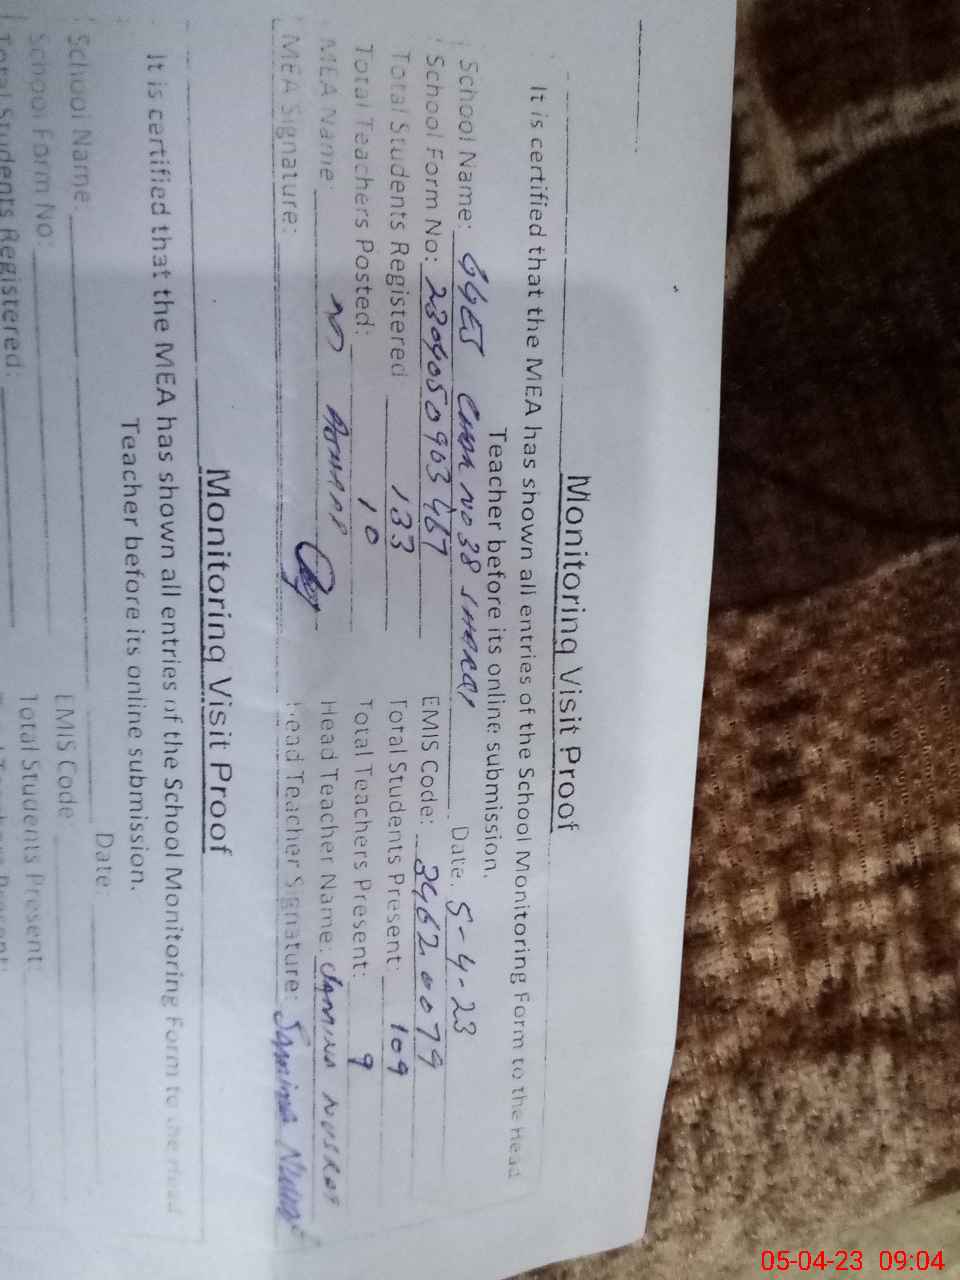 Monitoring Visit Proof
It is certified that the MEA has shown all entries of the School Monitoring Form to the Head
Teacher before its online submission.
School Name: GGES Chak No 38 Sharqi Date: 5-4-23
School Form No: 2304050903467 EMIS Code: 34620079
Total Students Registered 133 Total Students Present: 109
Total Teachers Posted: 10 Total Teachers Present: 9
MEA Name: Head Teacher Name: Samina Nusrat
MEA Signature: Head Teacher Signature: Samina Nusrat
Monitoring Visit Proof
It is certified that the MEA has shown all entries of the School Monitoring Form to the Head
Teacher before its online submission.
School Name: Date:
School Form No: EMIS Code:
Total Students Registered: Total Students Present:
05-04-23 09:04